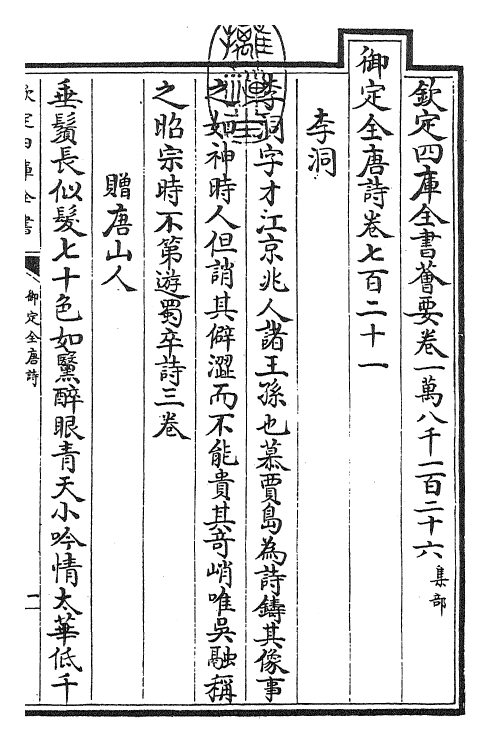 欽定四庫全書薈要卷一萬八千一百二十六集部
御定全唐詩卷七百二十一
李洞
李洞字才江京兆人諸王孫也慕賈島為詩鑄其像事
之如神時人但誚其僻澀而不能貴其奇峭唯吳融稱
之昭宗時不第遊蜀卒詩三卷
贈唐山人
垂鬚長似髮七十色如黳醉眼青天小吟情太華低千
欽定四庫全書
御定全唐詩